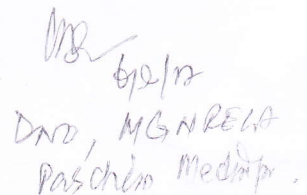 6/2/17
DNO, MGNREGA
Paschim Medinipur.